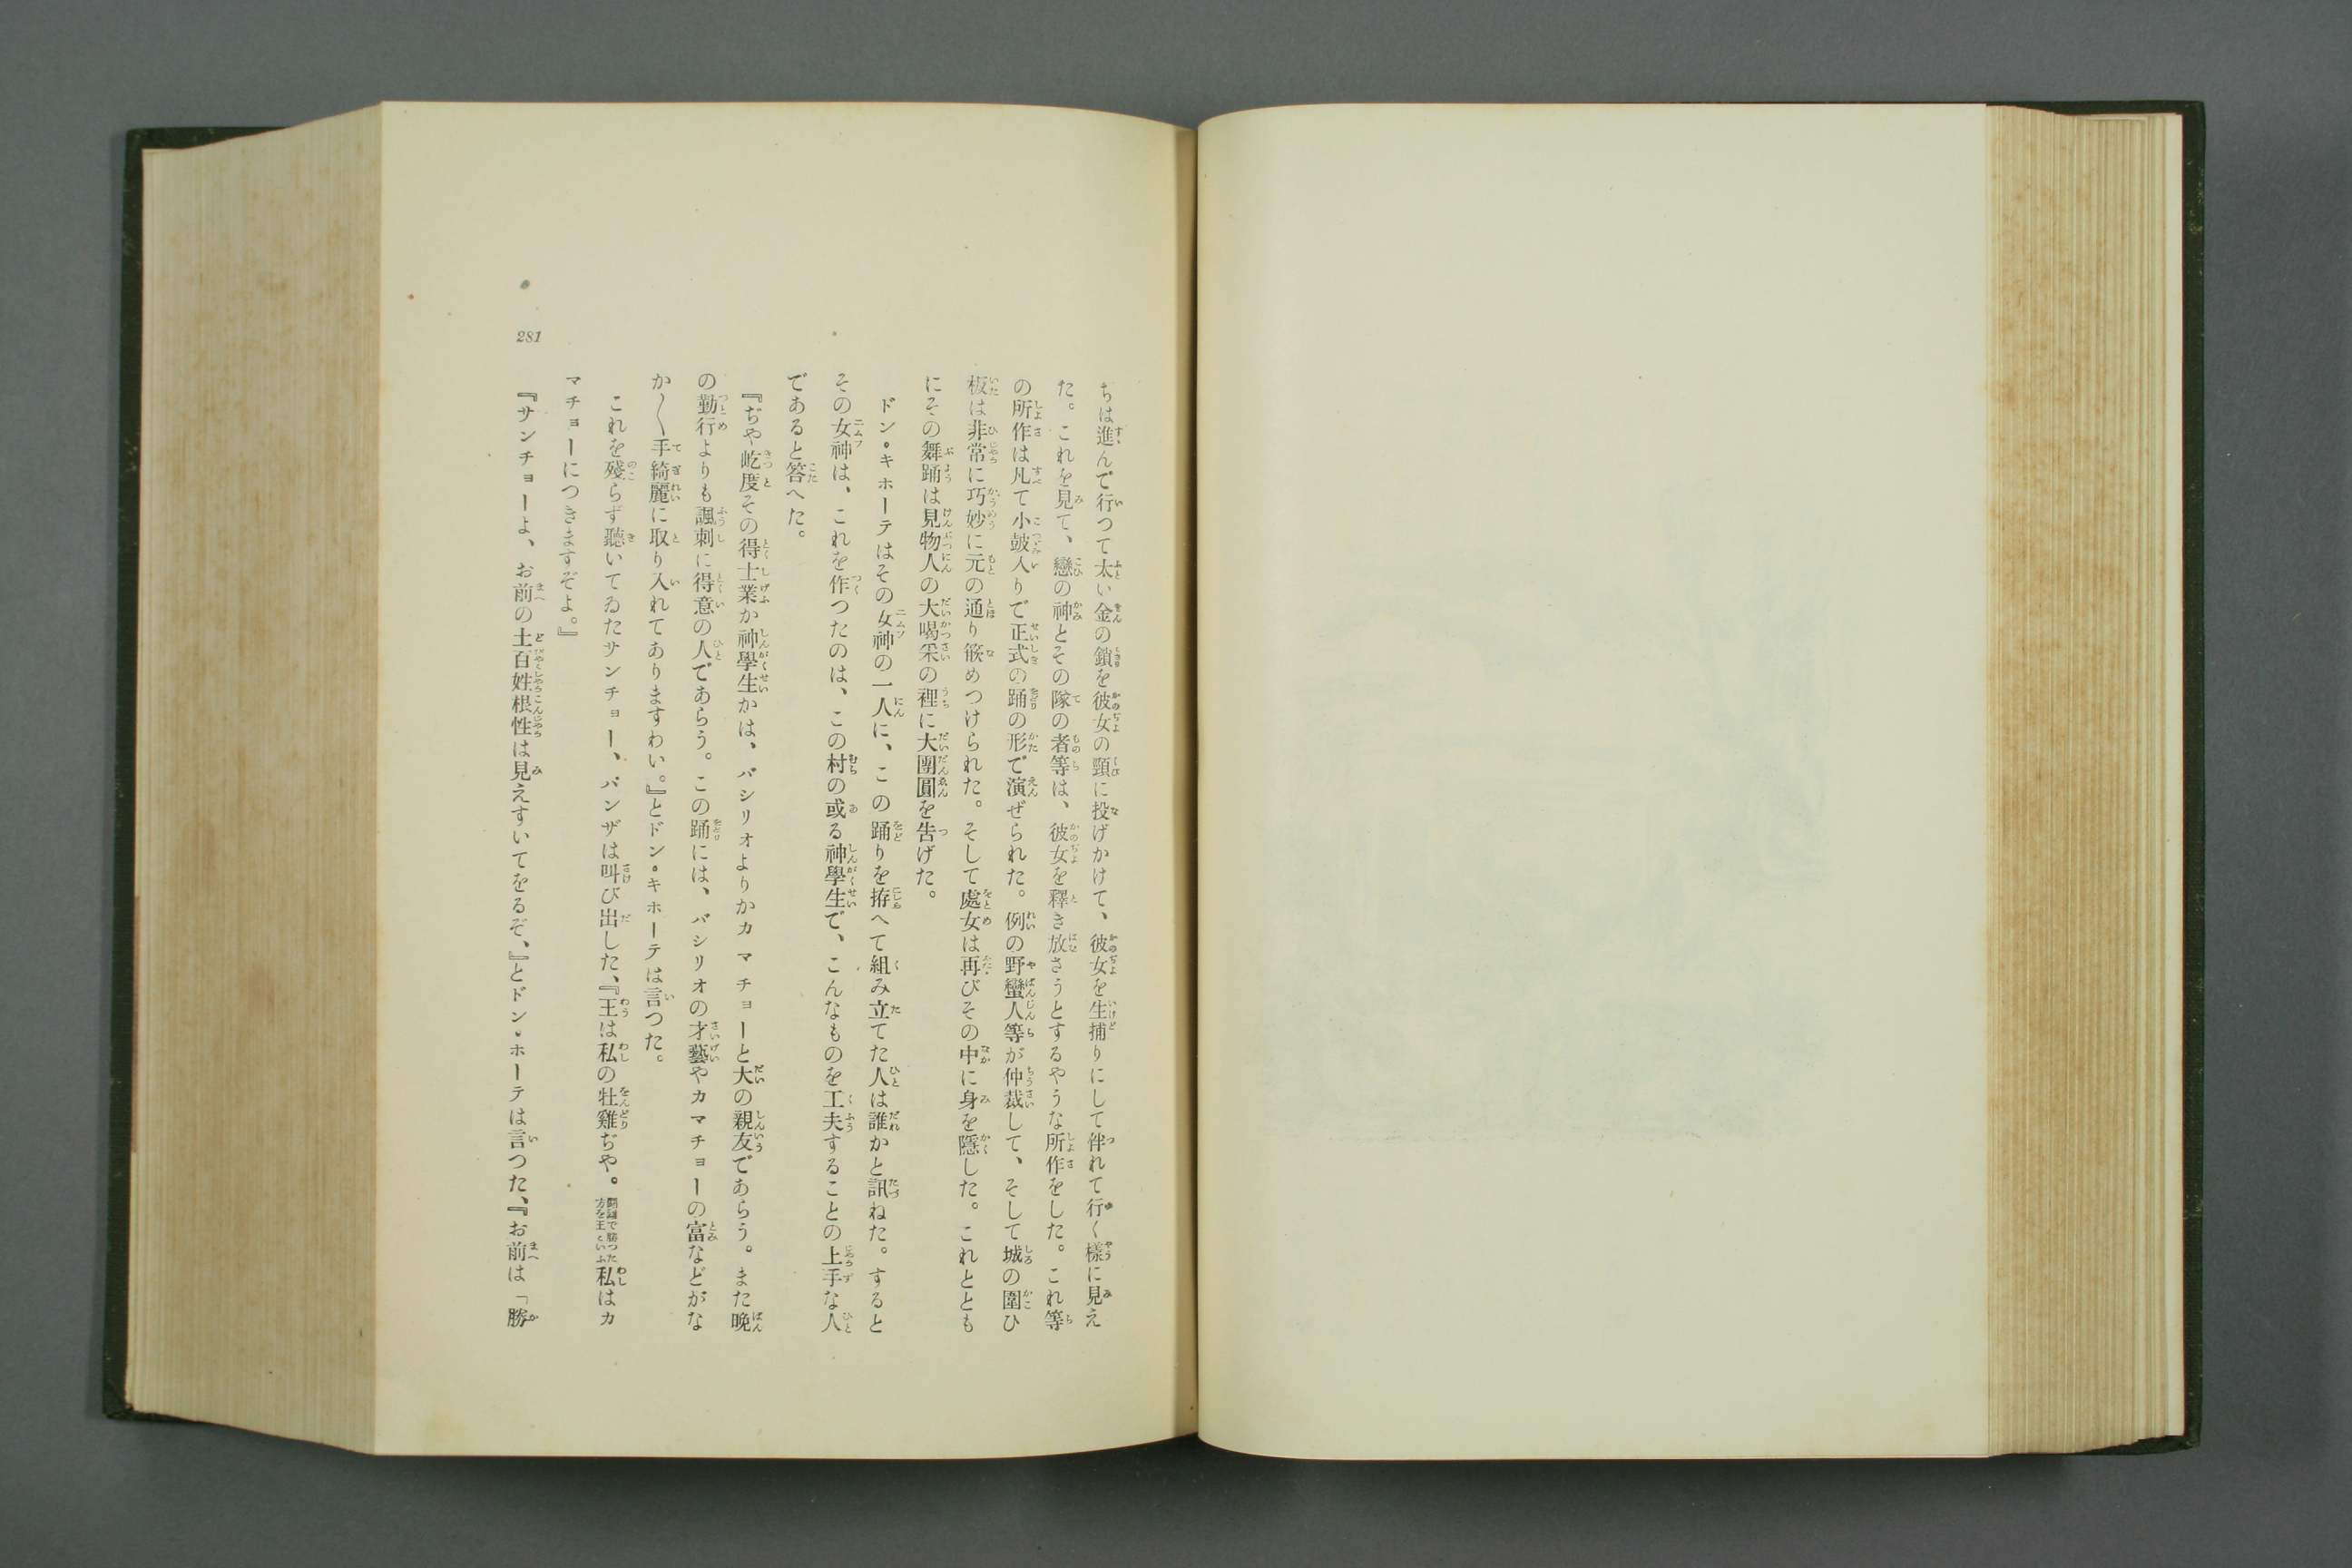 ちは進んで行つて太い金の鎖を彼女の頸に投げかけて、彼女を生捕りにして伴れて行く樣に見え
た。これを見て、戀の神とその隊の者等は、彼女を釋き放さうとするやうな所作をした。これ等
の所作は凡て小鼓入りで正式の踊の形で演ぜられた。例の野蠻人等が仲裁して、そして城の圍ひ
板は非常に巧妙に元の通り篏めつけられた。そして處女は再びその中に身を隱した。これととも
にその舞踊は見物人の大喝采の裡に大團圓を告げた。
ドン・キホーテはその女神の一人に、この踊りを拵へて組み立てた人は誰かと訊ねた。すると
その女神は、これを作つたのは、この村の或る神學生で、こんなものを工夫することの上手な人
であると答へた。
『ぢや屹度その得士業か神學生かは、バシリオよりかカマチョーと大の親友であらう。また晩
の勤行よりも諷刺に得意の人であらう。この踊には、バシリオの才藝やカマチョーの富などがな
か〳〵手綺麗に取り入れてありますわい。』とドン・キホーテは言つた。
これを殘らず聽いてゐたサンチョー、パンザは叫び出した、『王は私の牡雞ぢや。鬪雞で勝つた方を王といふ私はカ
マチョーにつきますぞよ。』
『サンチョーよ、お前の土百姓根性は見えすいてをるぞ、』とドン・ホーテは言つた、『お前は「勝
281